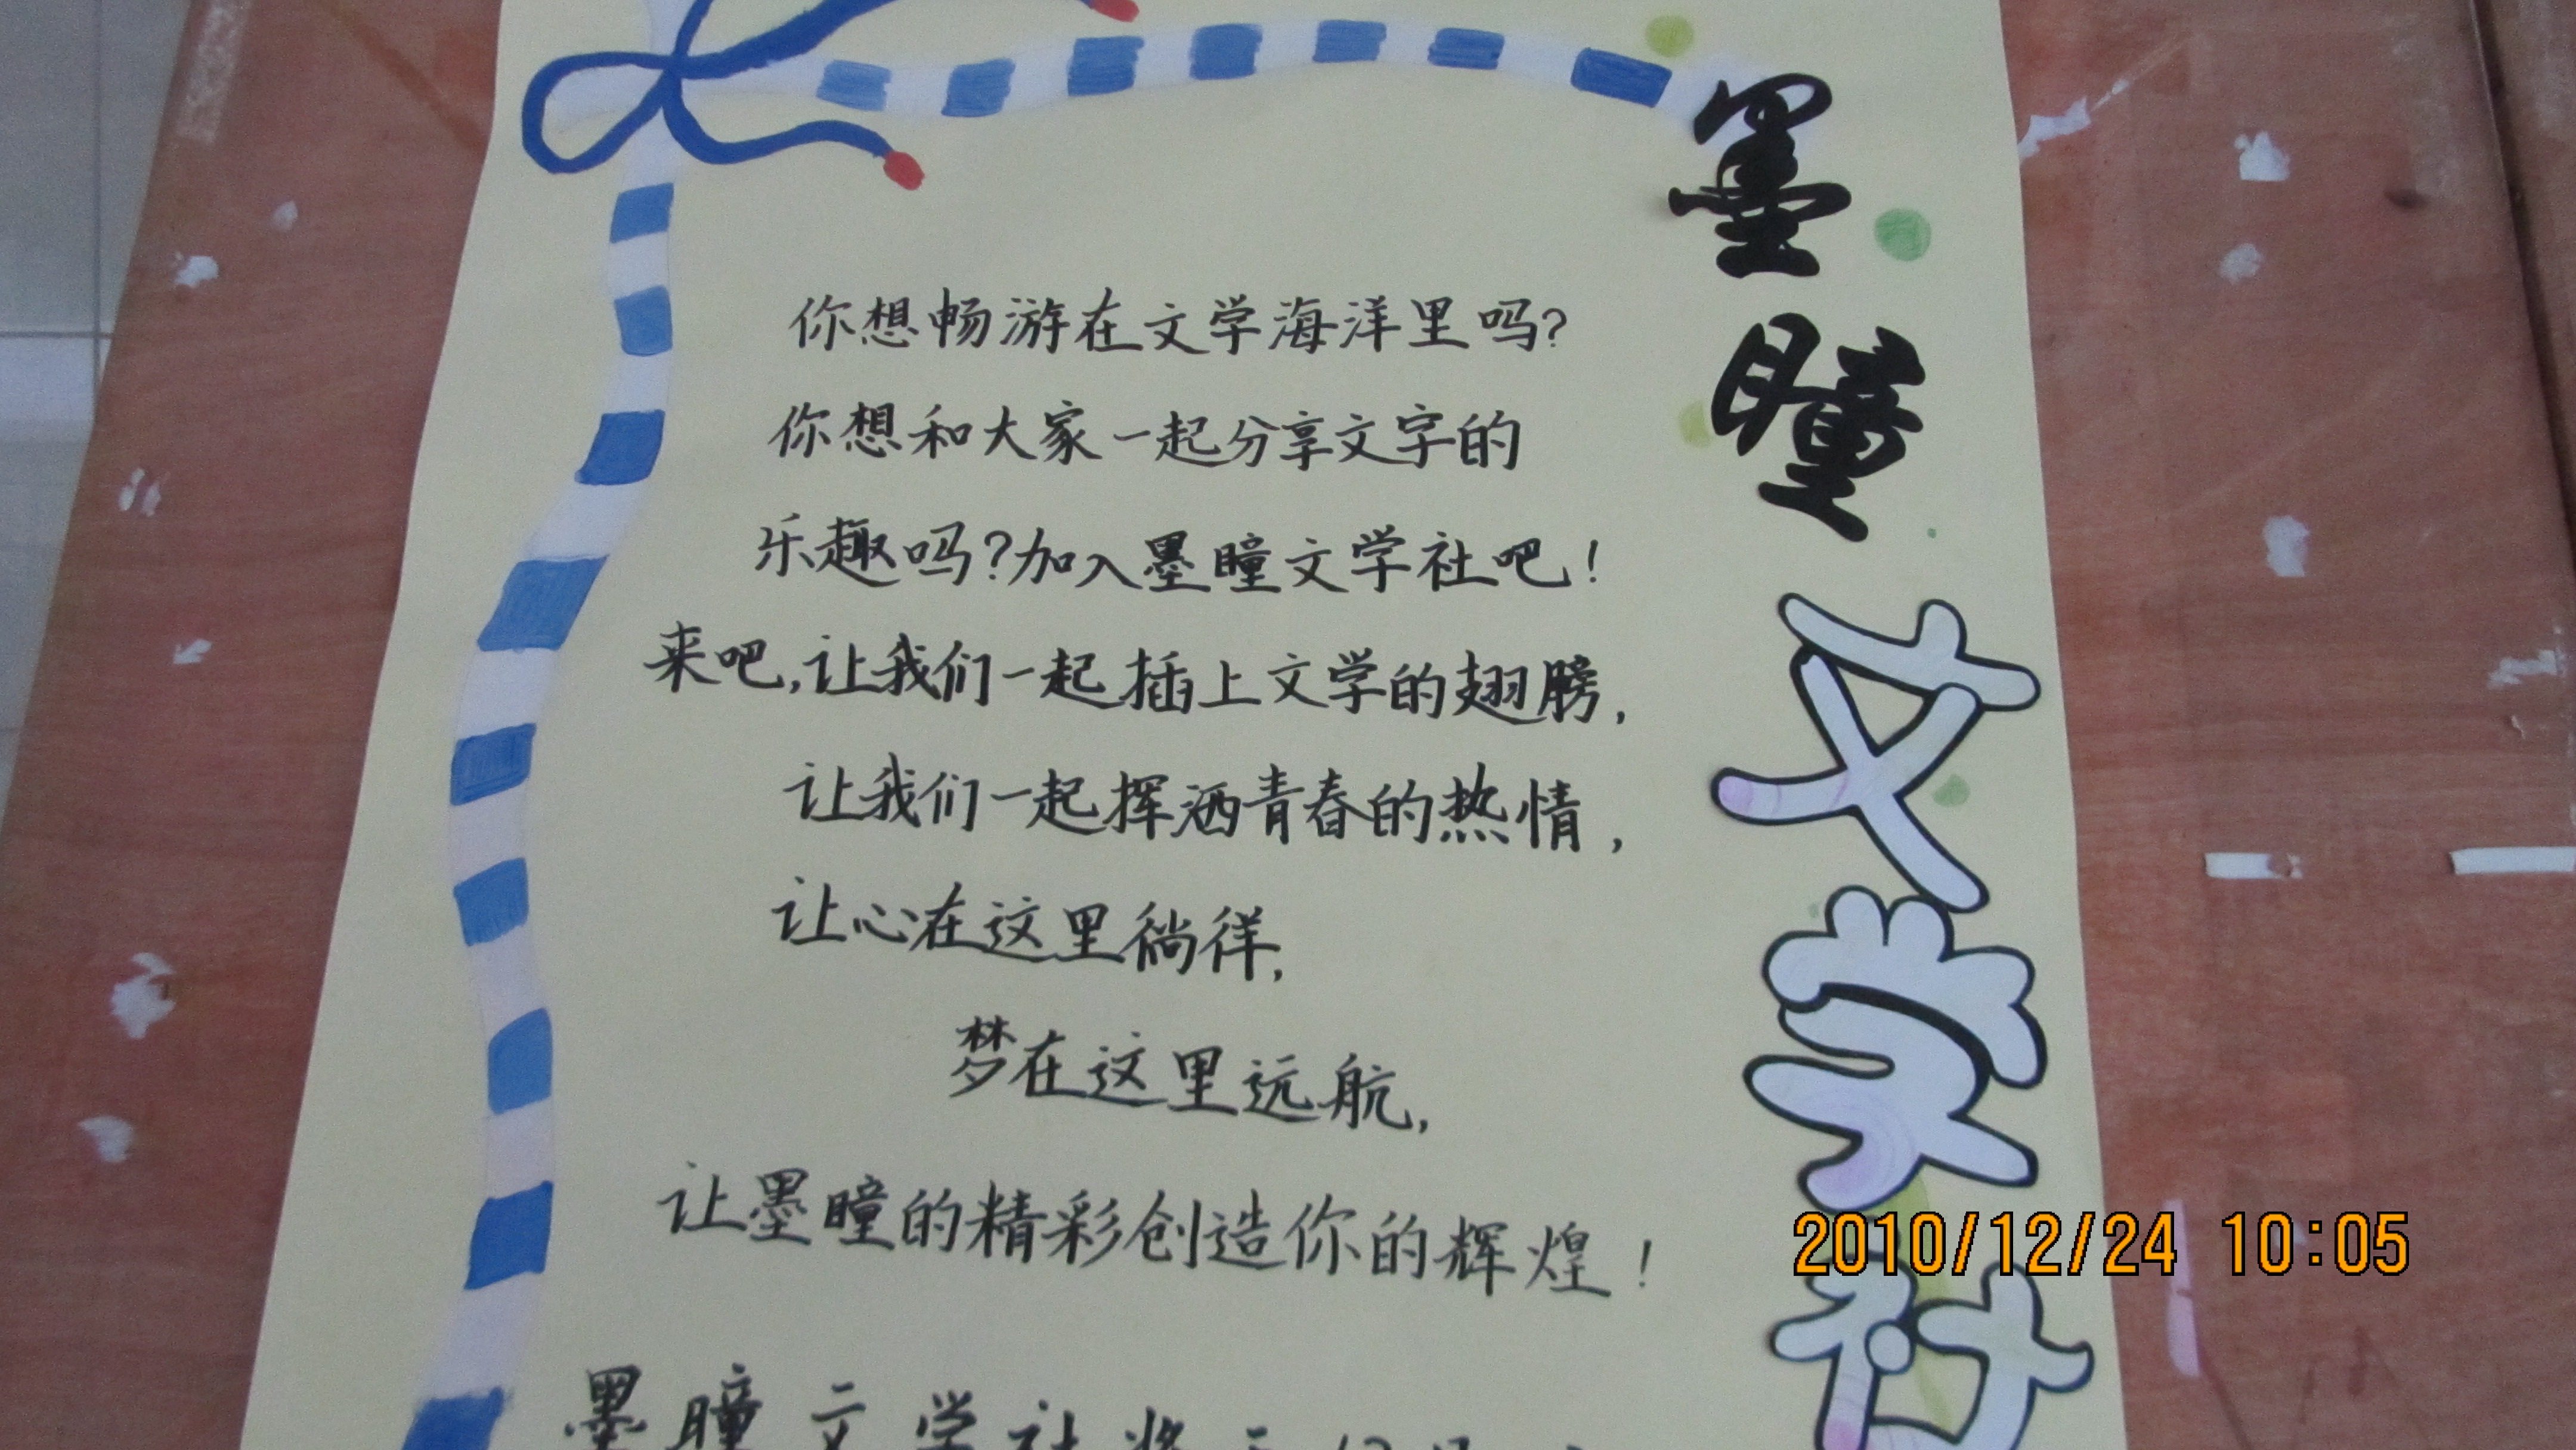 墨瞳文学社
你想畅游在文学海洋里吗?
你想和大家一起分享文字的
乐趣吗?加入墨瞳文学社吧!
来吧,让我们一起插上文学的翅膀,
让我们一起挥洒青春的热情,
让心在这里徜徉,
梦在这里远航,
让墨瞳的精彩创造你的辉煌!
墨瞳文学社将
2010/12/24 10:05